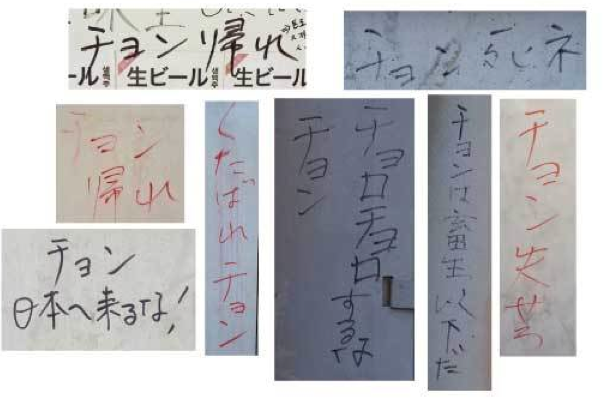 チョン帰れ
ール 생맥주 生ビール 생맥주 生ビール
チョン死ネ
チョン
帰れ
くたばれチョン
チョロチョロするな
チョン
チョンは畜生以下だ
チョン失せろ
チョン
日本へ来るな!